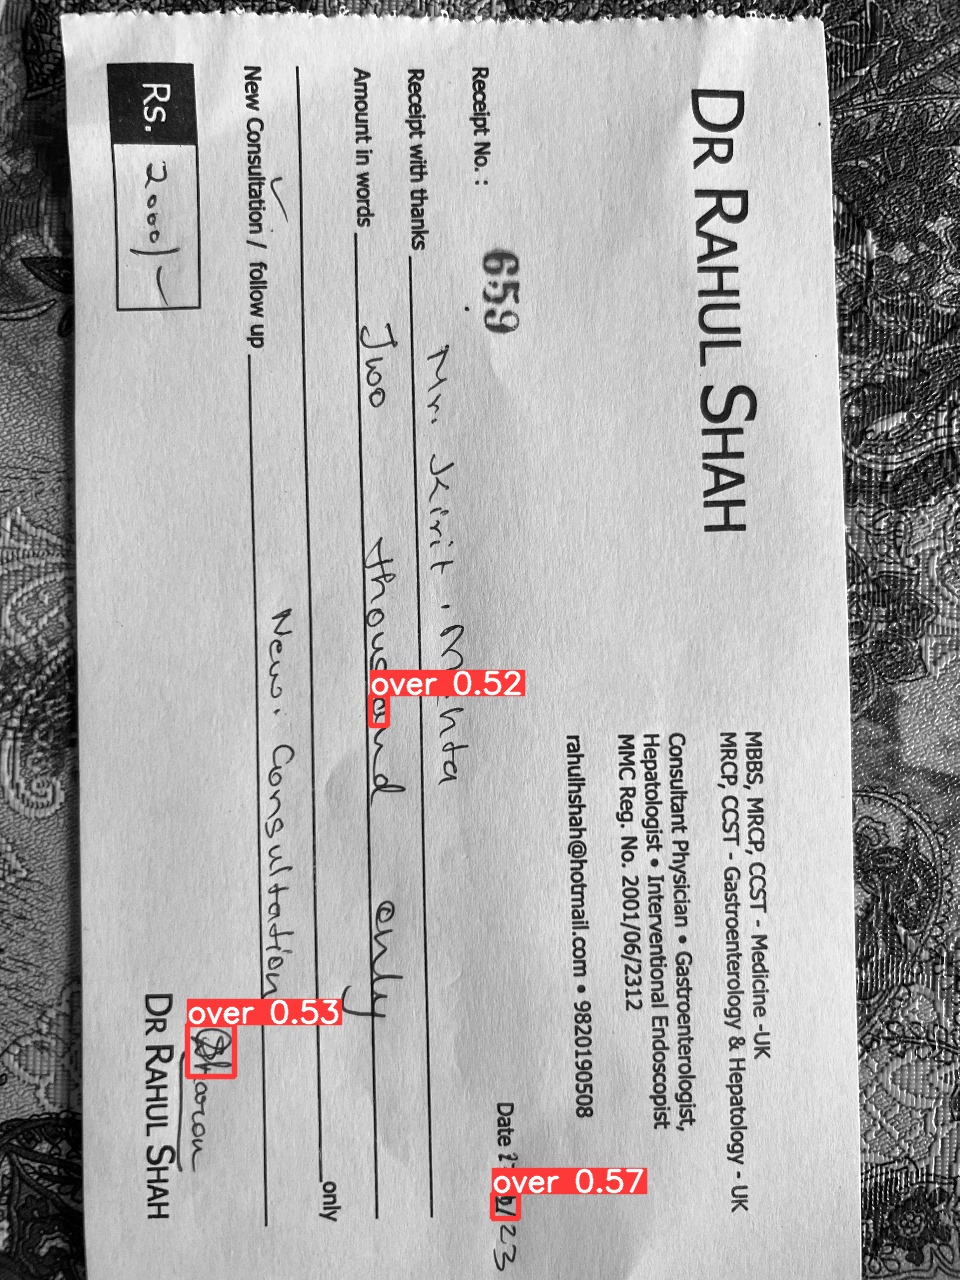 DR RAHUL SHAH
MBBS, MRCP, CCST - Medicine -UK
MRCP, CCST - Gastroenterology & Hepatology - UK
Consultant Physician • Gastroenterologist,
Hepatologist • Interventional Endoscopist
MMC Reg. No. 2001/06/2312
rahulhshah@hotmail.com • 9820190508
Receipt No. : 659 Date /23
Receipt with thanks Mr. Kirit . Mehta
Amount in words Two thousand only
only
New Consultation / follow up New. Consultation
Rs. 2000/-
DR RAHUL SHAH
over 0.52
over 0.53
over 0.57